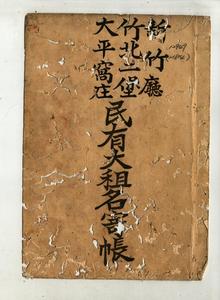 新竹廳
竹北二堡
大平窩庄
民有大租名寄帳